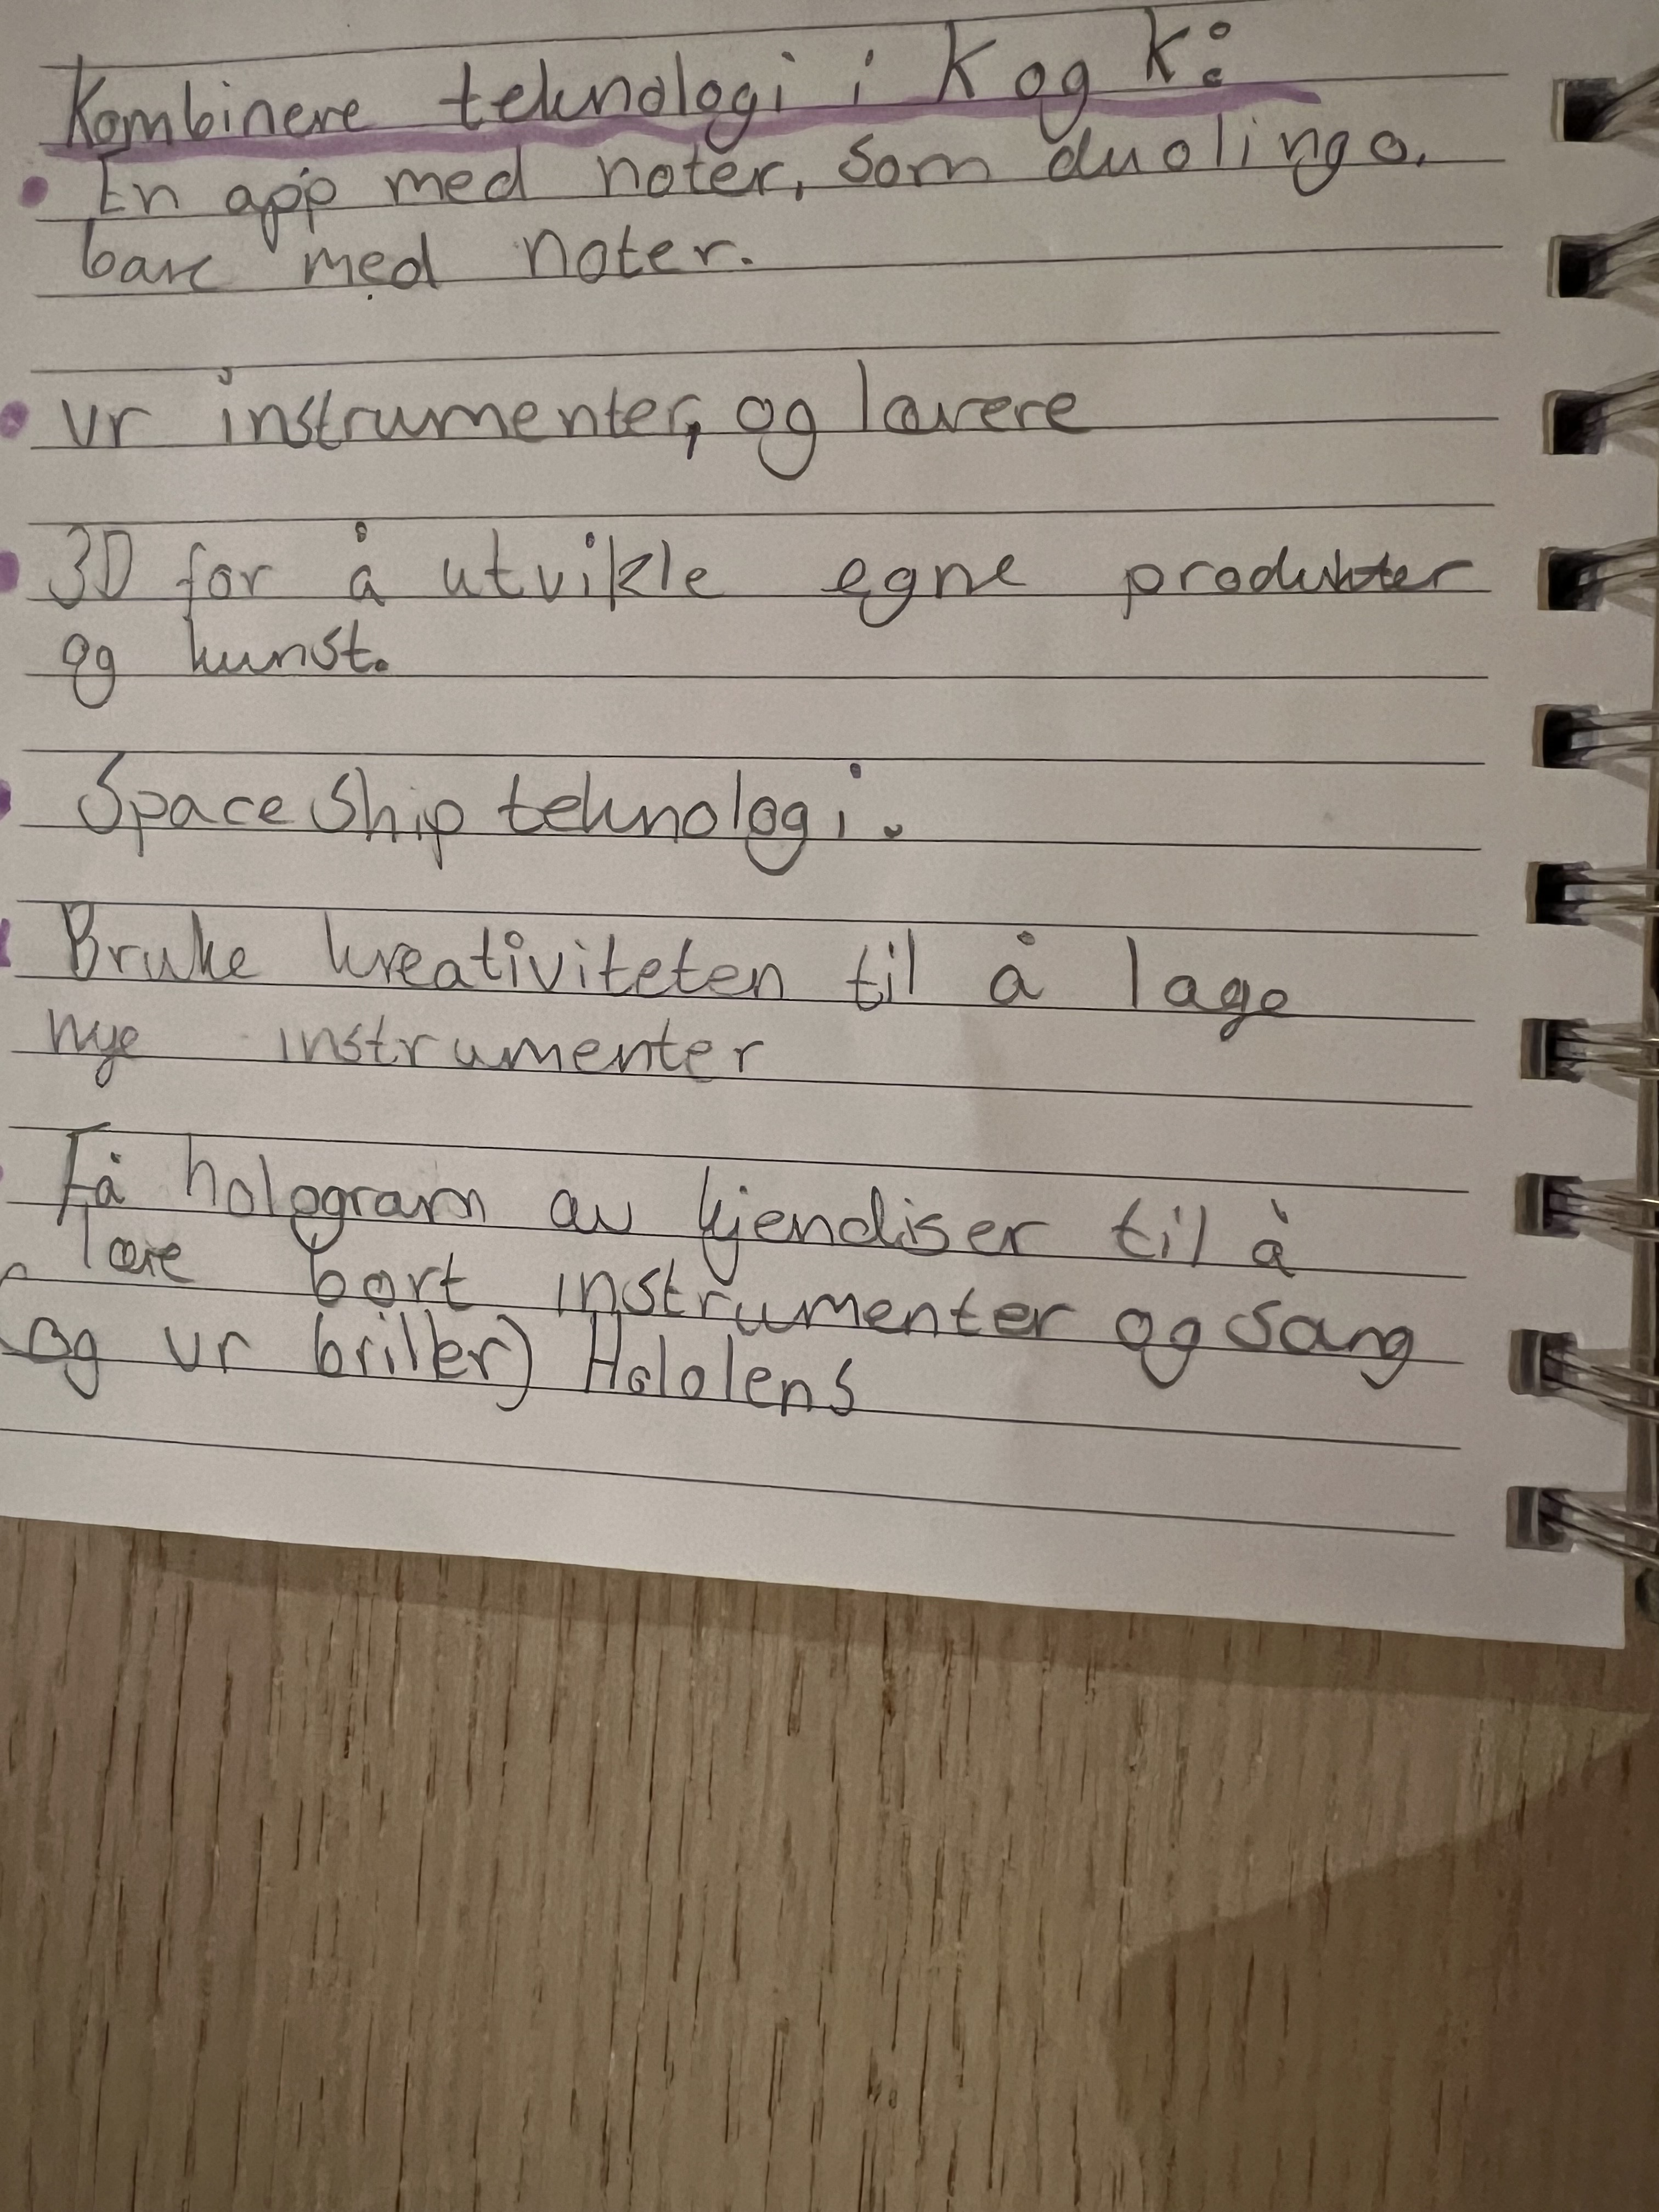 Kombinere teknologi i K og K:
• En app med noter, som duolingo,
bare med noter.
• vr instrumenter, og lærere
• 3D for å utvikle egne produkter
og kunst.
• Space Ship teknologi.
• Bruke kreativiteten til å lage
nye instrumenter
• Få hologram av kjendiser til å
lære bort instrumenter og sang
(og vr briller) Hololens